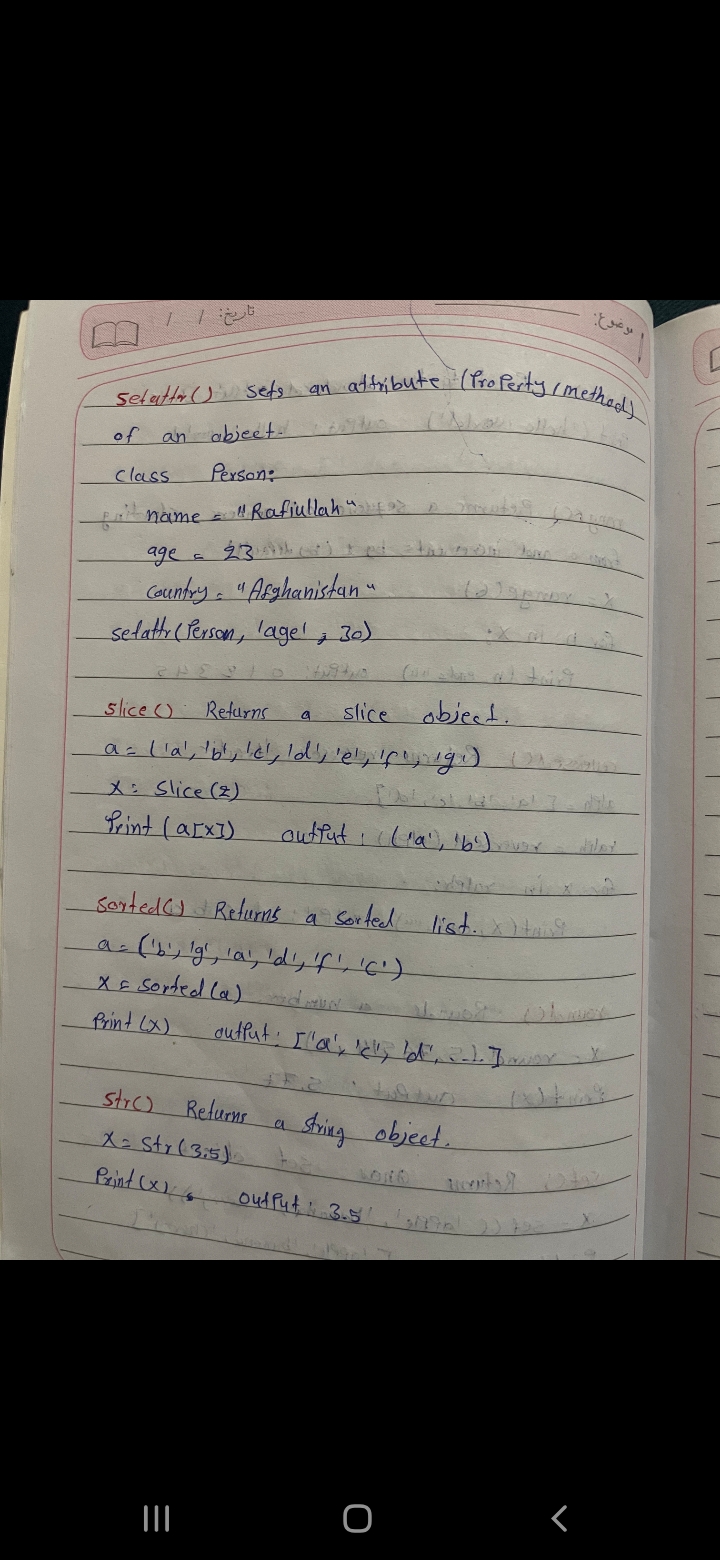 موضوع:
تاریخ: / /
setattr() sets an attribute (Property/method)
of an object.
class Person:
name = "Rafiullah"
age = 23
country = "Afghanistan"
setattr(Person, 'age', 30)
slice() Returns a slice object.
a = ('a', 'b', 'c', 'd', 'e', 'f', 'g')
x = slice(2)
Print (a[x]) output : ('a', 'b')
sorted() Returns a sorted list.
a = ('b', 'g', 'a', 'd', 'f', 'c')
x = sorted(a)
Print (x) output : ['a', 'c', 'd', ...]
str() Returns a string object.
x = str(3.5)
Print(x) output : 3.5